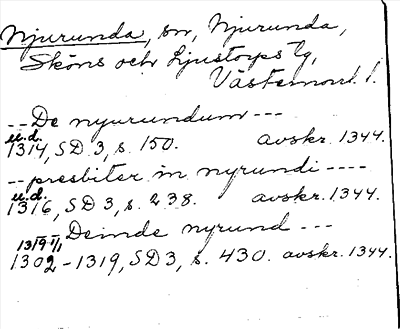 Njurunda, sn, Njurunda,
Sköns och Ljustorps tg,
Västernorrl. l.
-- De nyurundum ---
u.d.
1314, SD 3, s. 150. avskr. 1344.
-- presbiter in nyrundi ----
u.d.
1316, SD 3, s. 238. avskr. 1344.
-- Deinde nyrund ---
1319 1/1
1302-1319, SD 3, s. 430. avskr. 1344.